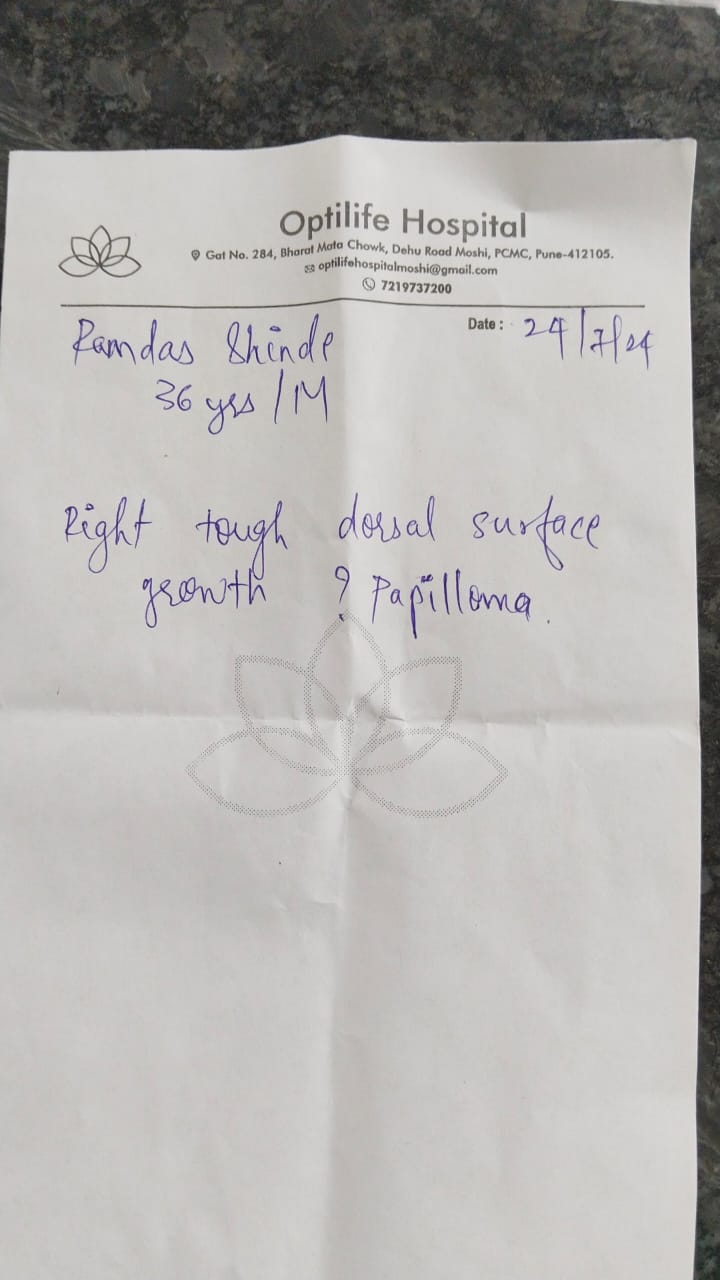 Optilife Hospital
Gat No. 284, Bharat Mata Chowk, Dehu Road Moshi, PCMC, Pune-412105.
optilifehospitalmoshi@gmail.com
7219737200
Date : 24/7/24
Ramdas Shinde
36 yrs / M
Right tough dorsal surface
growth ? Papilloma.